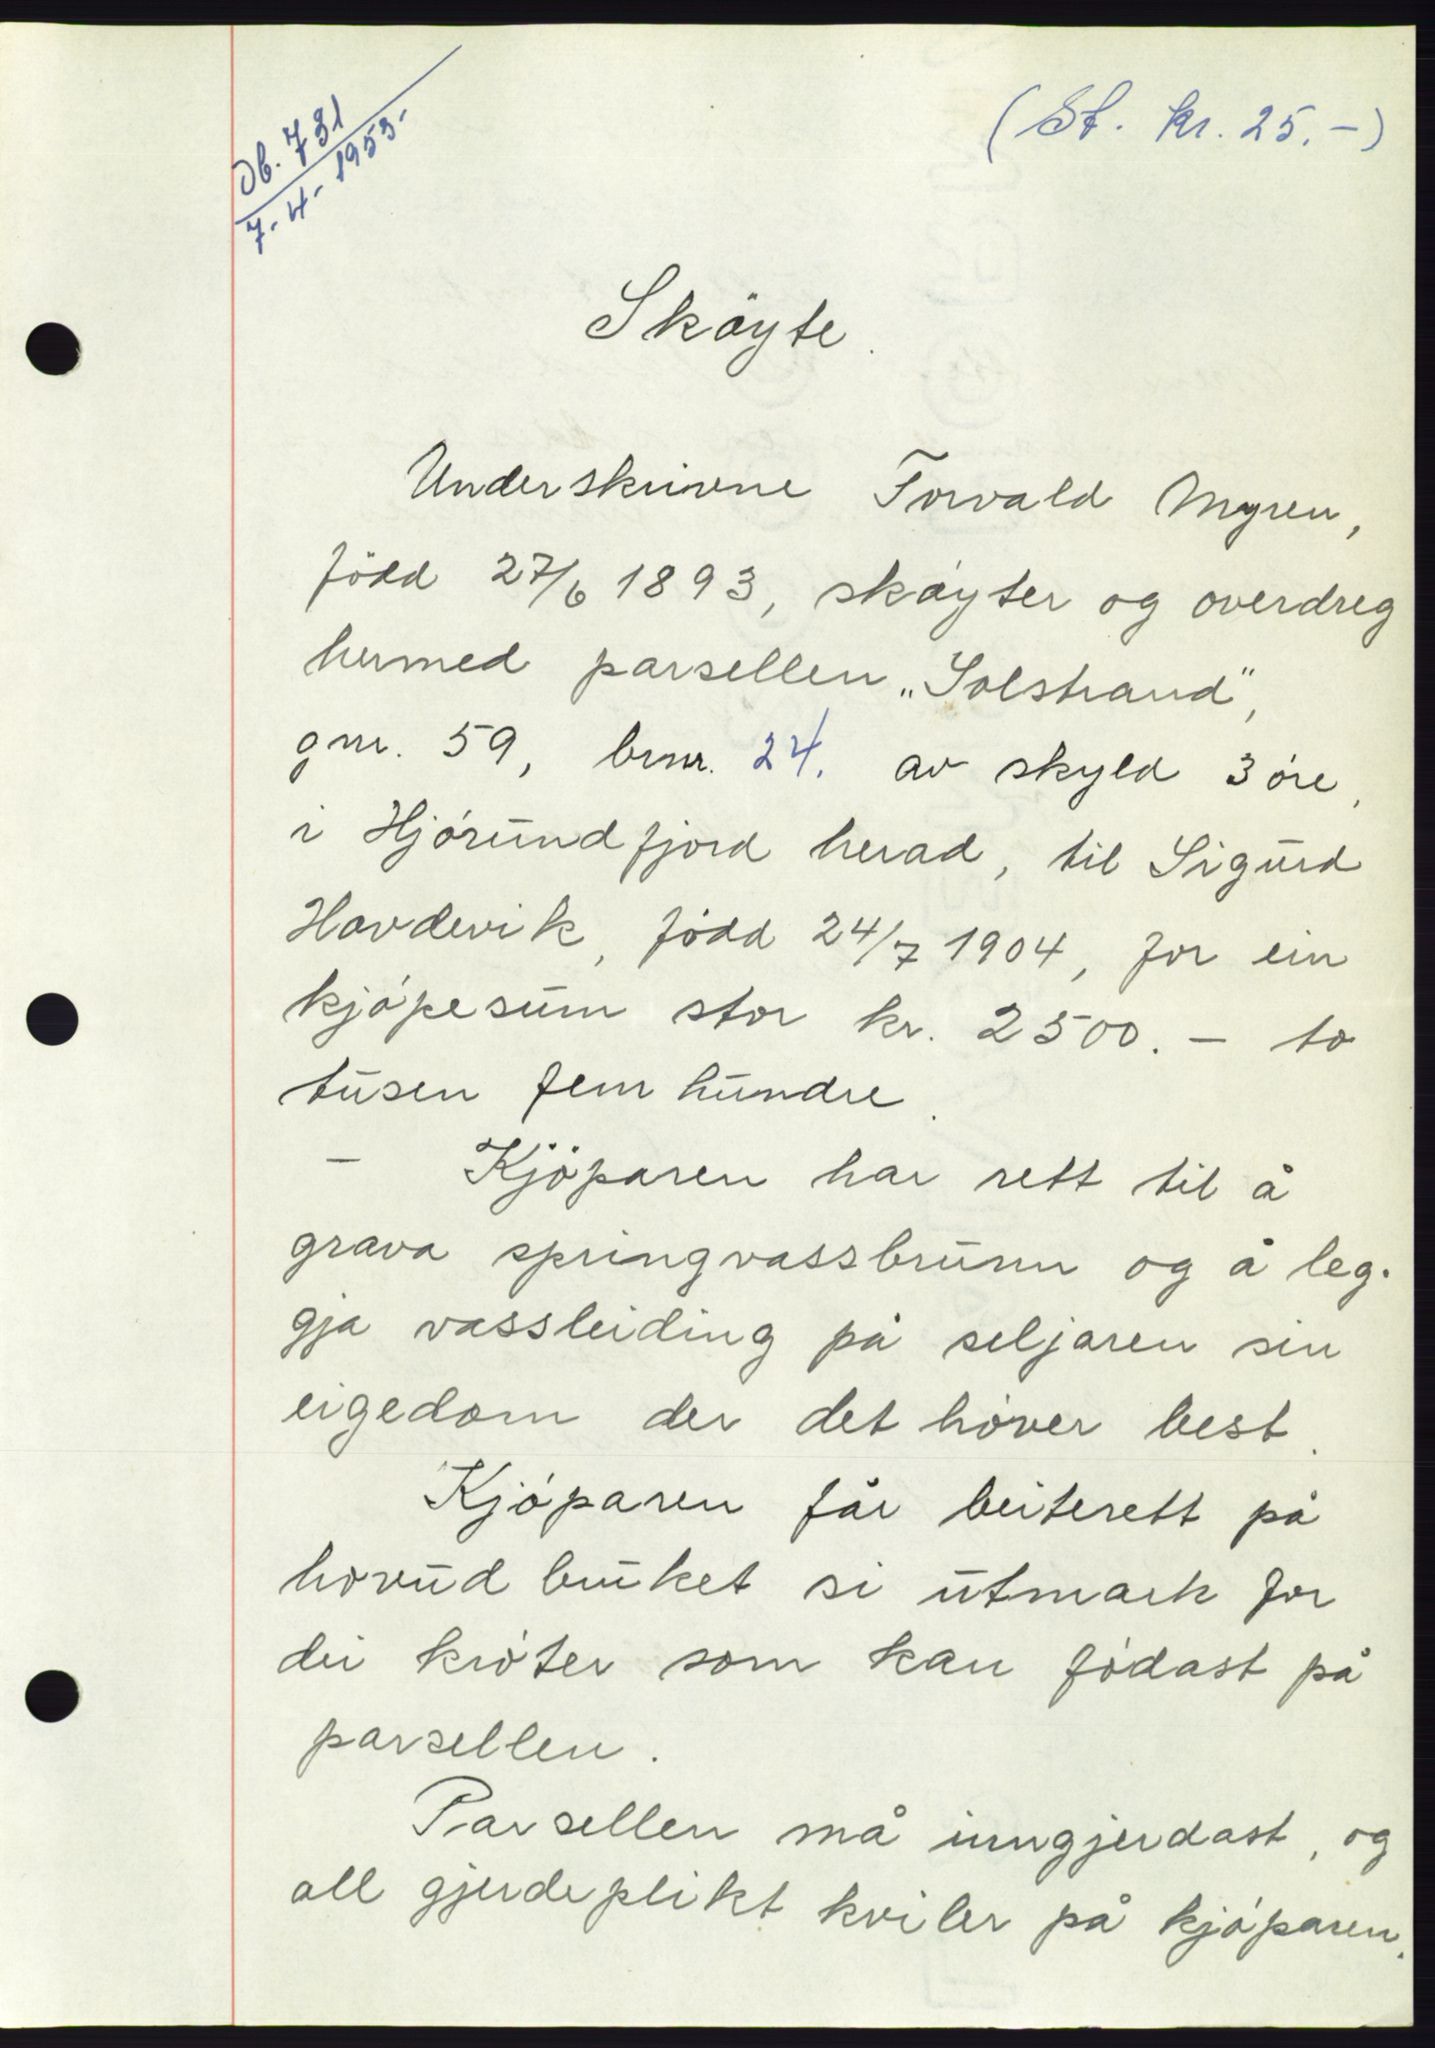 Db. 731
7-4-1953-
(St. kr. 25.-)
Sköyte.
Underskrivne Torvald Myren,
född 27/6 1893, sköyter og overdreg
hermed parsellen „Solstrand",
gnr. 59, brnr. 24. av skyld 3 öre,
i Hjörundfjord herad, til Sigurd
Havdevik, född 24/7 1904, for ein
kjöpesum stor kr. 2500.- to
tusen fem hundre.
- Kjöparen har rett til å
grava springvassbrunn og å leg-
gja vassleiding på seljaren sin
eigedom der det höver best.
Kjöparen får beiterett på
hovudbruket si utmark for
dei kröter som kan födast på
parsellen.
Parsellen må inngjerdast, og
all gjerdeplikt kviler på kjöparen.